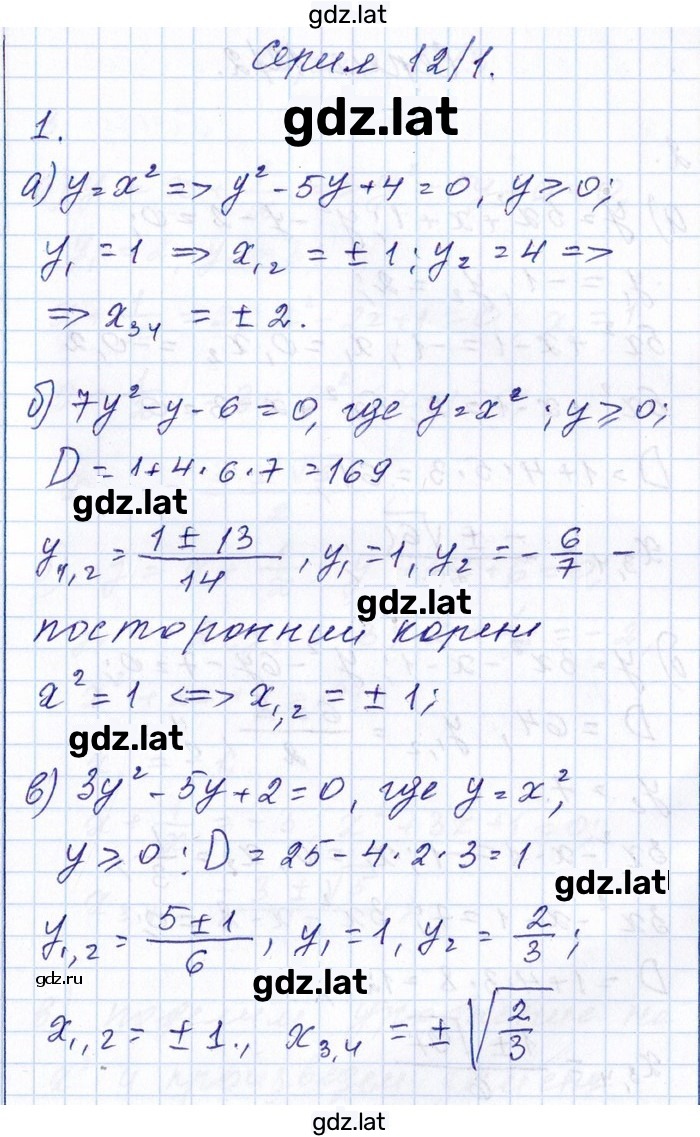 gdz.lat
Серия 12/1.
gdz.lat
1.
а) y=x² => y²-5y+4=0, y⩾0;
y₁=1 => x₁,₂ = ±1; y₂=4 =>
=> x₃,₄ = ±2.
б) 7y²-y-6=0, где y=x²; y⩾0;
D=1+4·6·7=169
gdz.lat
y₁,₂ = (1±13)/14, y₁=1, y₂=-6/7 -
gdz.lat
посторонний корень
x²=1 <=> x₁,₂ = ±1;
gdz.lat
в) 3y²-5y+2=0, где y=x²,
y⩾0: D=25-4·2·3=1
gdz.lat
y₁,₂ = (5±1)/6, y₁=1, y₂=2/3;
gdz.ru
gdz.lat
x₁,₂ = ±1., x₃,₄ = ±√(2/3)
gdz.lat